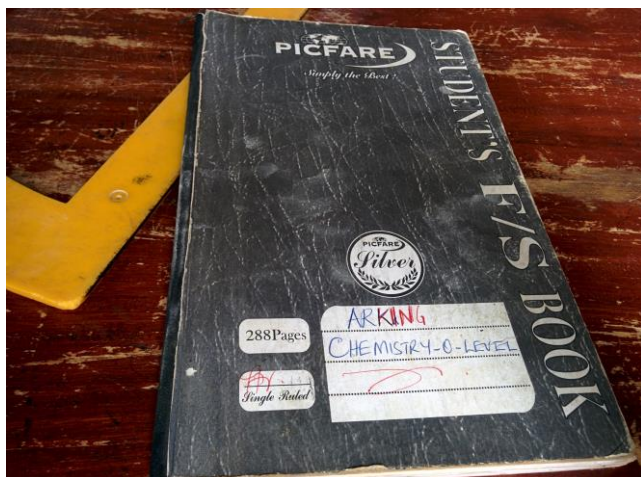 PICFARE
Simply the Best!
STUDENT'S F/S BOOK
PICFARE
Silver
288Pages
Single Ruled
ARKING
CHEMISTRY-O-LEVEL